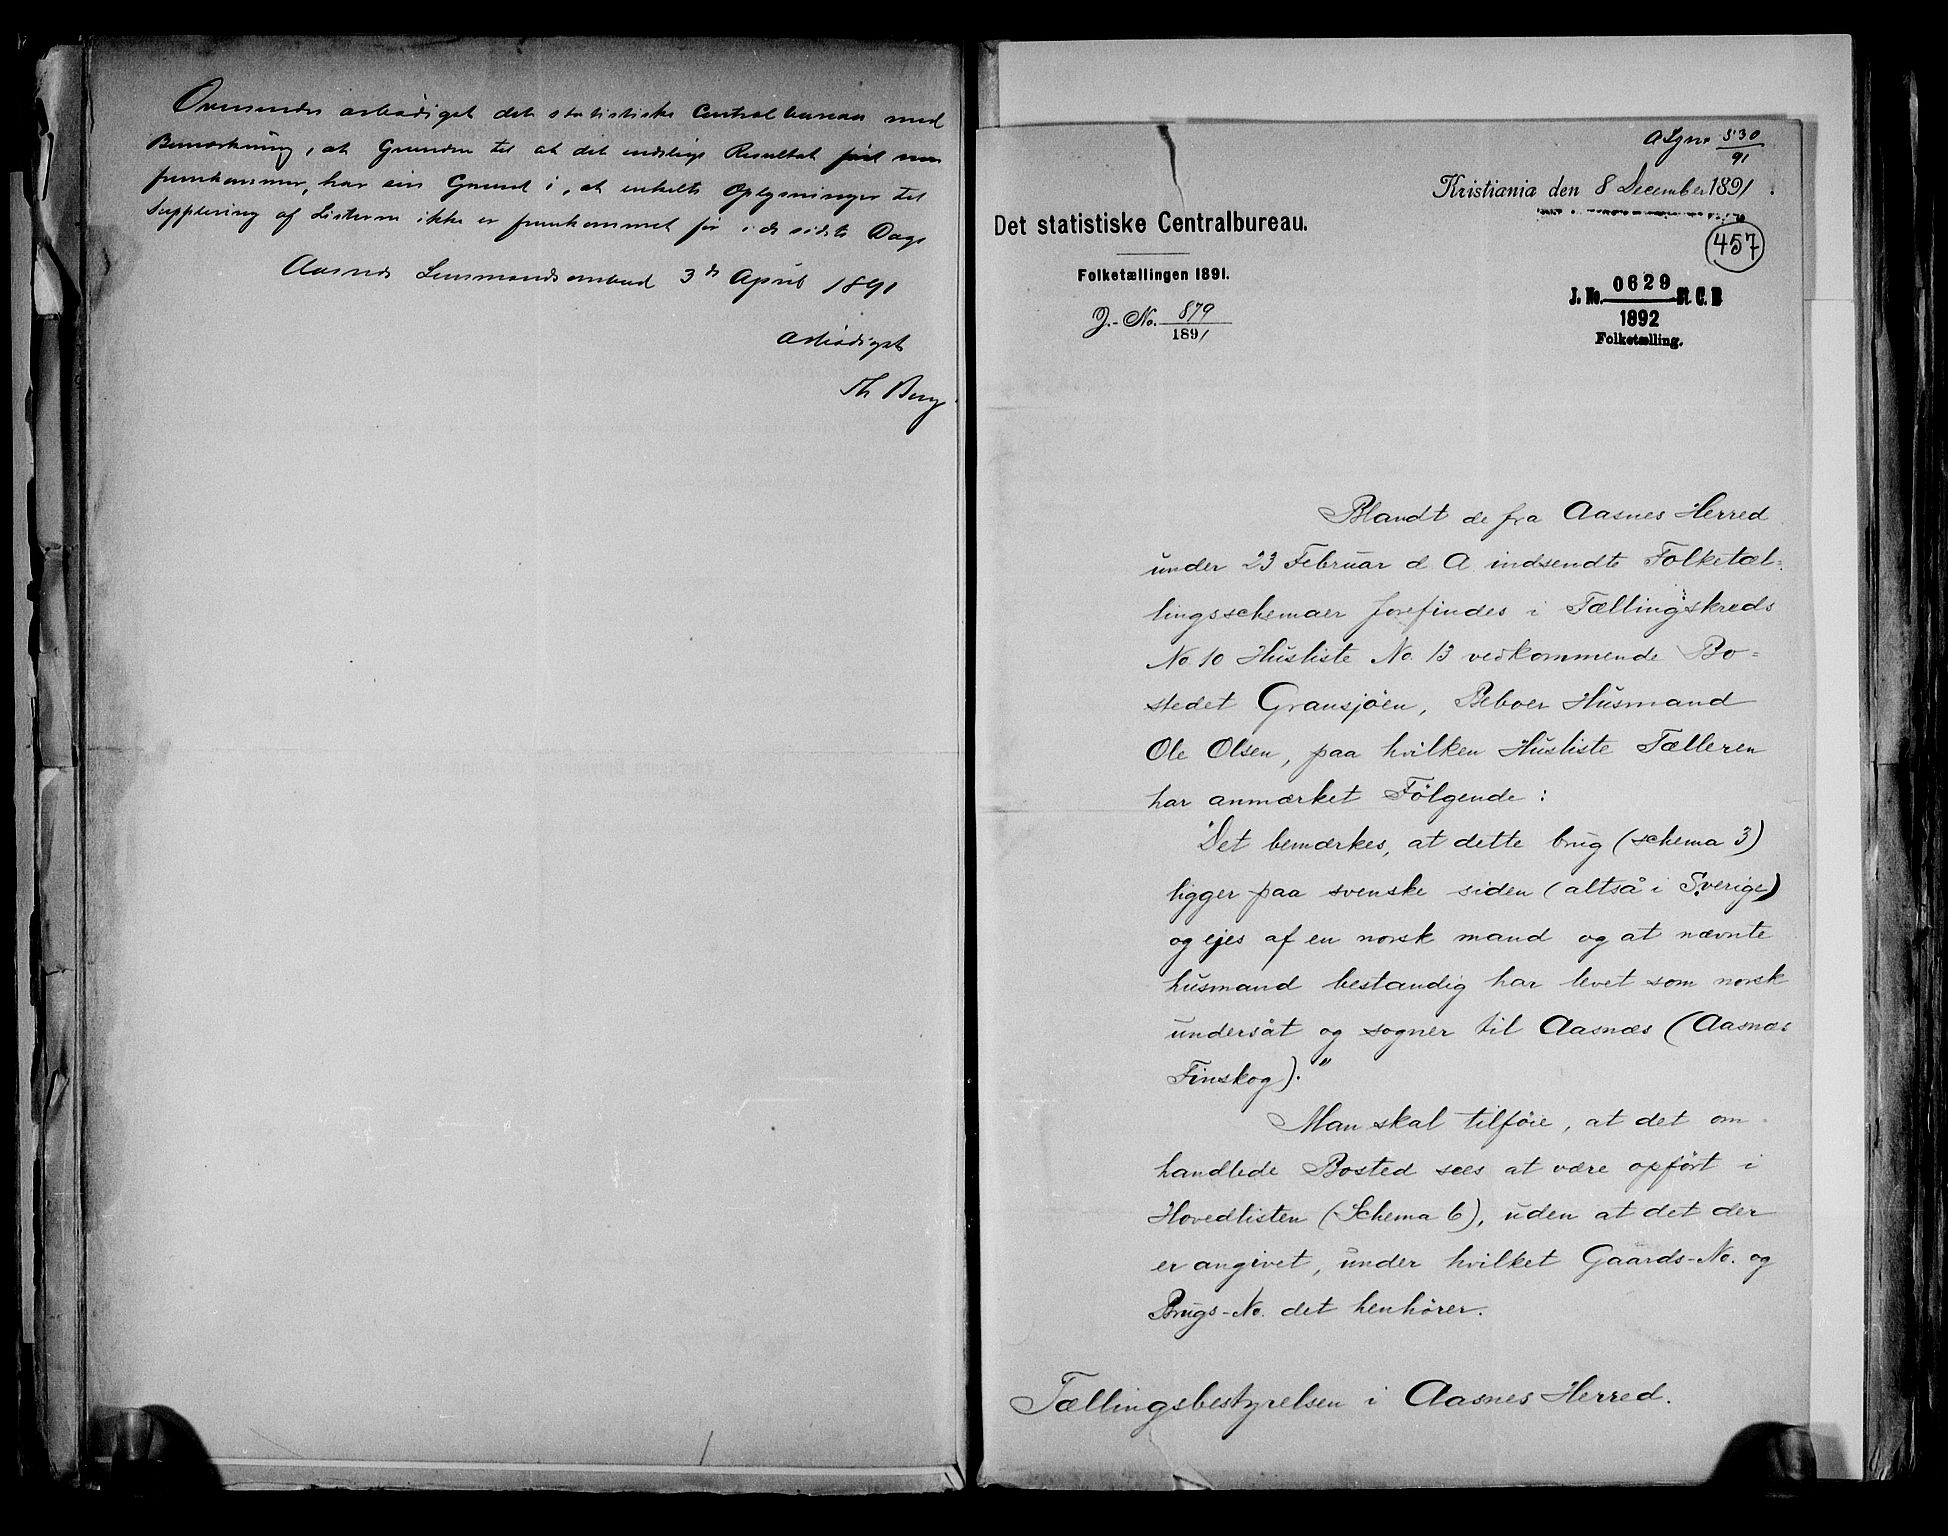 Oversendes ærbødigst det statistiske Centralbureau med
Bemærkning, at Grunden til at det endelige Resultat først nu
fremkommer, har sin Grund i, at enkelte Oplysninger til
Supplering af Listerne ikke er fremkommet før i de sidste Dage
Aasnes Lensmandsombud 3de April 1891
Ærbødigst
Th Berg
530
91
Kristiania den 8 December 1891.
Det statistiske Centralbureau.
457
Folketællingen 1891.
J.-No. 879
1891
J. No. 0629 St. C. B
1892
Folketælling.
Blandt de fra Aasnes Herred
under 23 Februar d A. indsendte Folketæl-
lingsschemaer forefindes i Tællingskreds
No. 10 Husliste No. 13 vedkommende Bo-
stedet Gransjøen, Beboer Husmand
Ole Olsen, paa hvilken Husliste Tælleren
har anmærket Følgende:
"Det bemærkes, at dette brug (schema 3)
ligger paa svenske siden (altså i Sverige)
og ejes af en norsk mand og at nævnte
husmand bestandig har levet som norsk
undersåt og sogner til Aasnæs (Aasnæs
Finskog)."
Man skal tilføie, at det om-
handlede Bosted sees at være opført i
Hovedlisten (Schema 6), uden at det der
er angivet, under hvilket Gaards-No. og
Brugs-No. det henhører.
Tællingsbestyrelsen i Aasnes Herred.